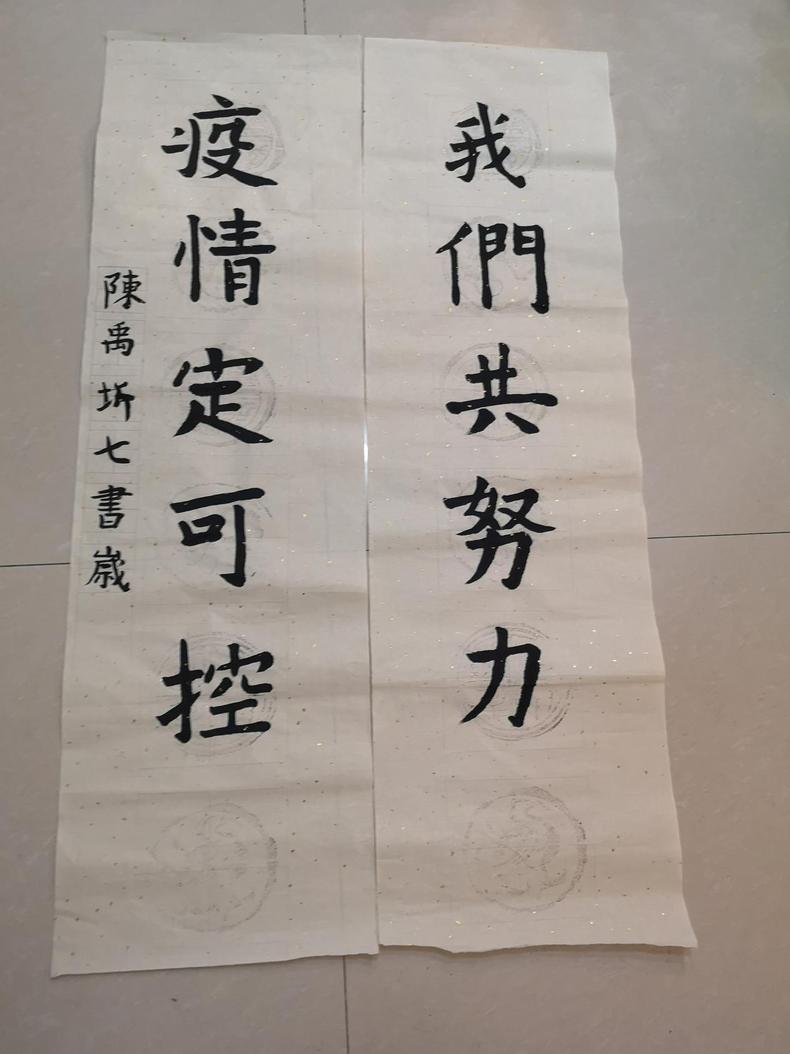 我們共努力
疫情定可控
陳禹圻七書歲